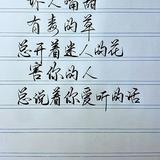 坏人嘴甜
有毒的草
总开着迷人的花
害你的人
总说着你爱听的话